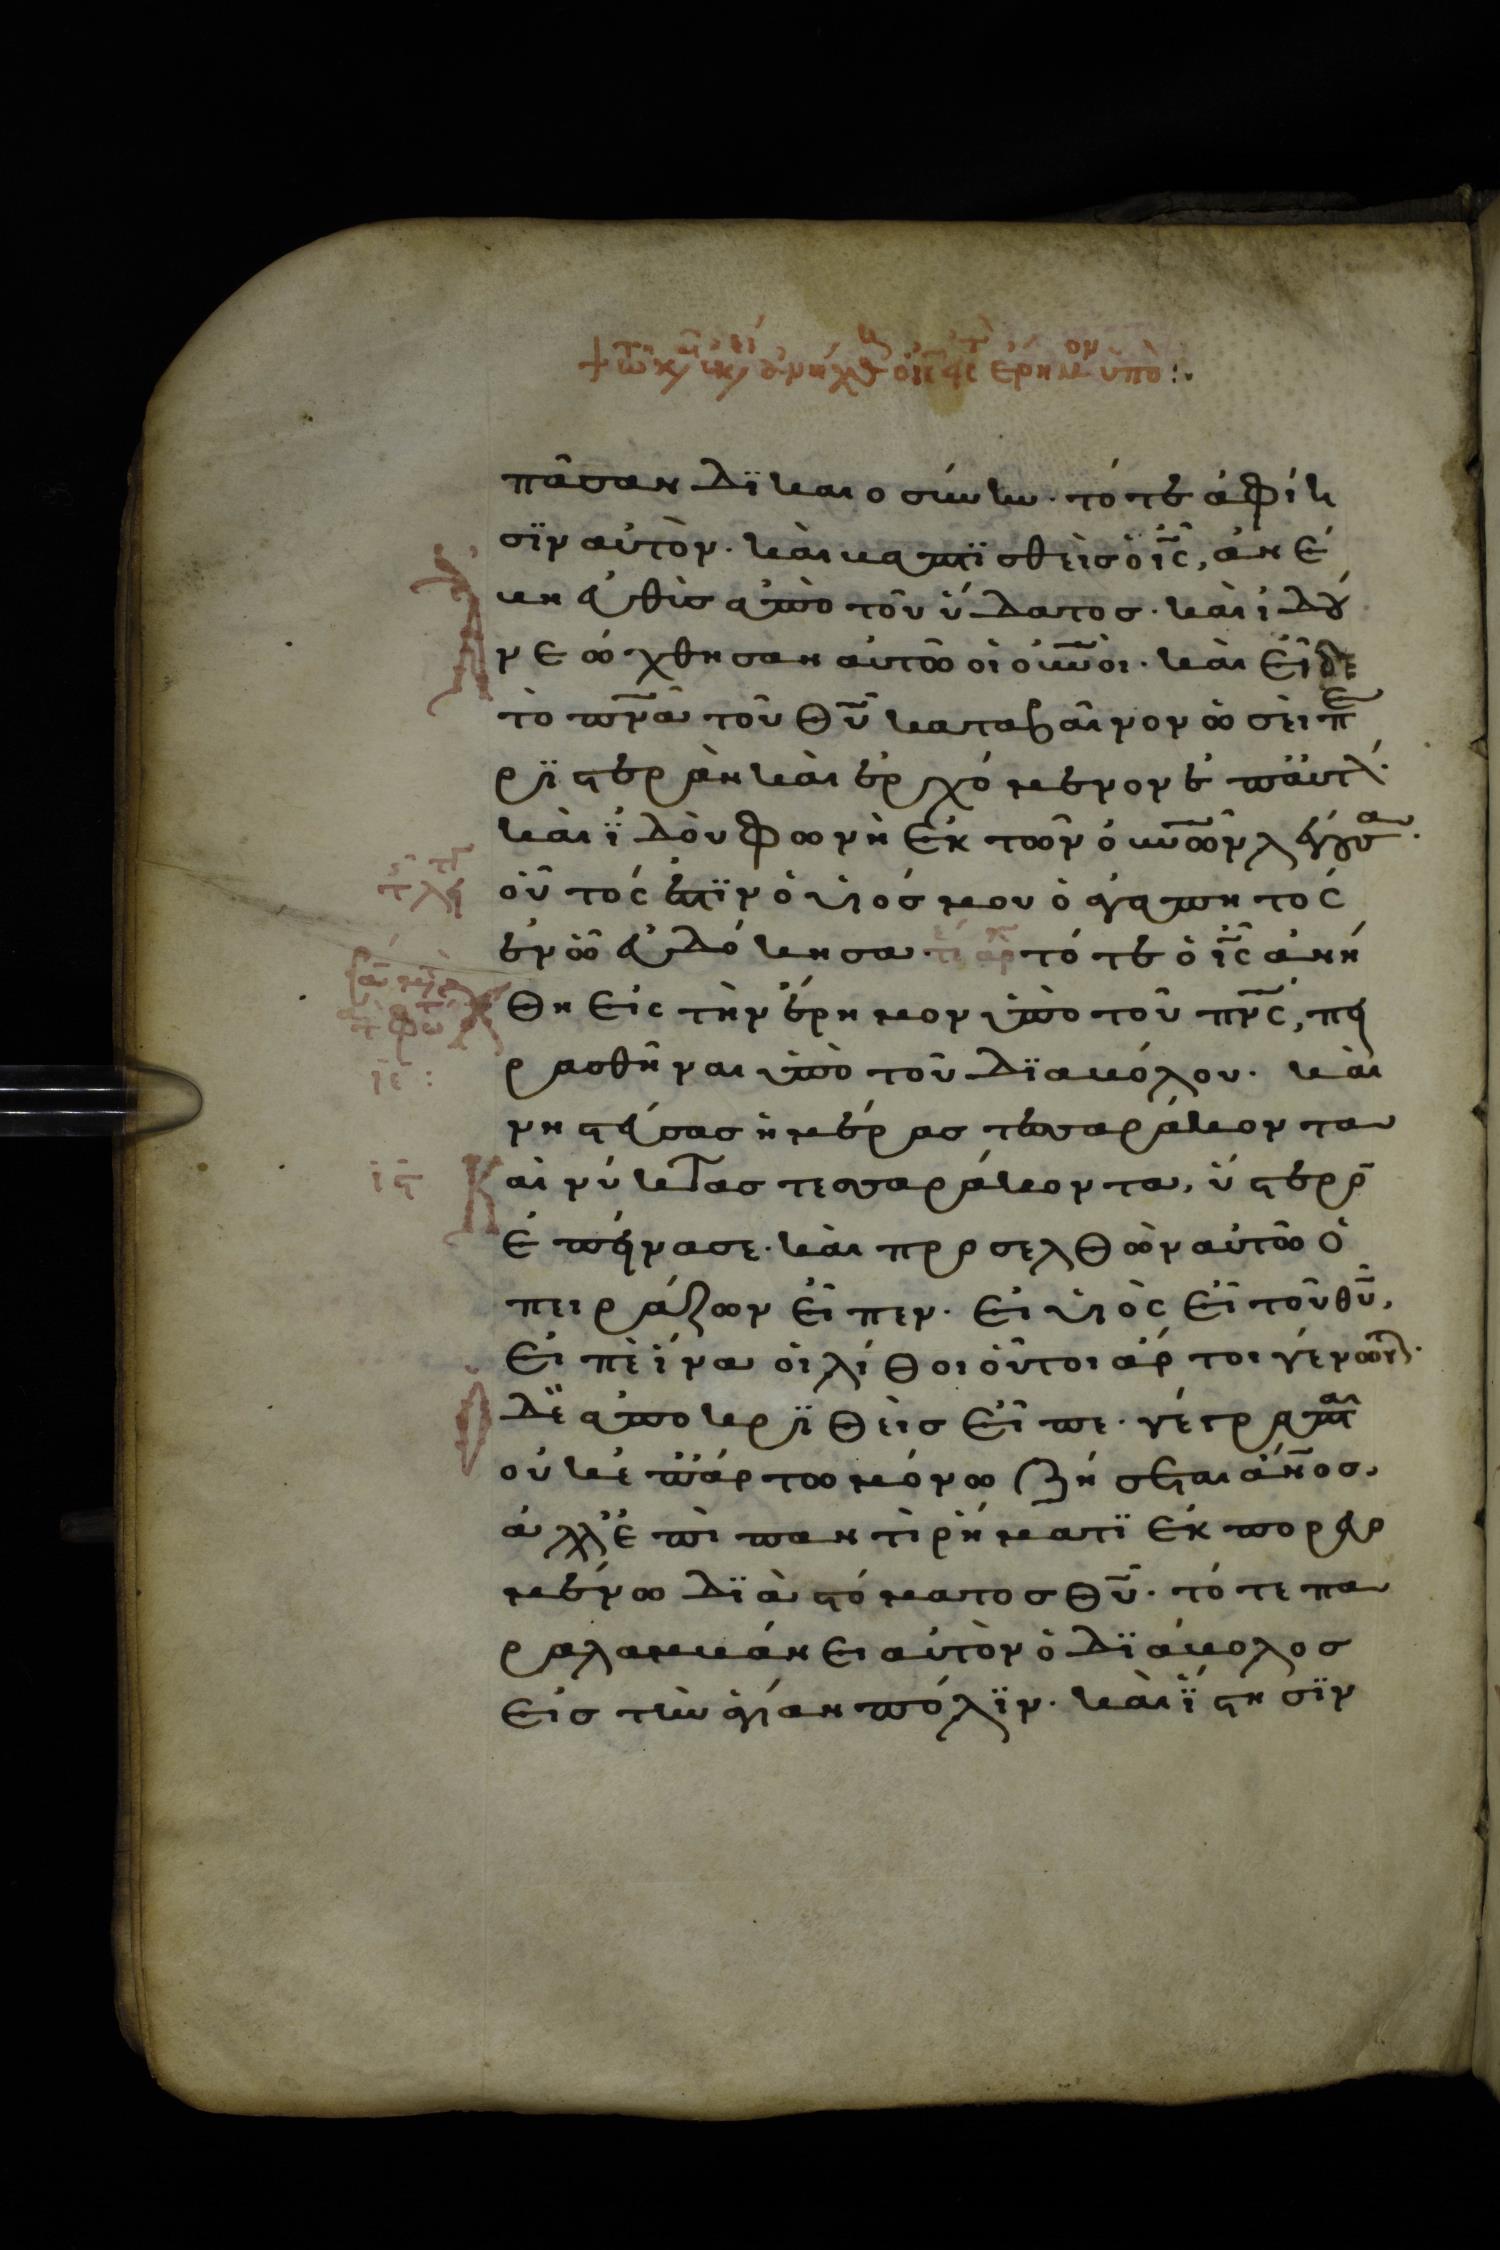 πᾶσαν δϊκαιοσύνην· τότε ἀφίη
σϊν αὐτὸν· καὶ βαπτϊσθεὶσ ὁ ἰ̅ς̅, ἀνέ
βη εὐθὺσ ἀπὸ τοῦ ὕδατοσ· καὶ ἰδού
νεώχθησαν αὐτῶ οἱ οὐ̅νο̅ὶ· καὶ εἶδε
τὸ π̅ν̅α̅ τοῦ θ̅υ̅ καταβαῖνον ὡσεὶ πε
ρϊστερὰν καὶ ἐρχόμενον ἐπ' αὐτόν·
καὶ ϊδοὺ φωνὴ ἐκ τῶν οὐ̅νω̅ν λέγουσα·
οὗτός ἐστϊν ὁ υἱόσ μου ὁ ἀγαπητὸς
ἐν ῶ εὐδόκησα· τότε ὁ ἰ̅ς̅ ἀνή
θη εἰς τὴν ἔρημον ὑπὸ τοῦ π̅ν̅ς̅, πει
ρασθῆναι ὑπὸ τοῦ δϊαβόλου· καὶ
νηστεύσασ ἡμέρασ τεσσαράκοντα
Καὶ νύκτασ τεσσαράκοντα, ὕστερον
ἐπείνασε· καὶ προσελθὼν αὐτῶ ὁ
πειράζων εἶπεν· εἰ υἱὸς εἶ τοῦ θ̅υ̅,
εἰπὲ ἵνα οἱ λίθοι οὗτοι ἄρτοι γένωνται·
Ὁ δὲ ἀποκρϊθεὶσ εἶπε· γέγραπται
οὐκ ἐπ' ἄρτω μόνω ζήσεται ἄν̅ο̅σ.
ἀλλ' ἐπὶ παντὶ ῥήματϊ ἐκπορευο
μένω δϊὰ στόματοσ θ̅υ̅· τότε πα
ραλαμβάνει αὐτὸν ὁ δϊάβολοσ
εἰσ τὴν ἁγίαν πόλϊν· καὶ ϊστησϊν